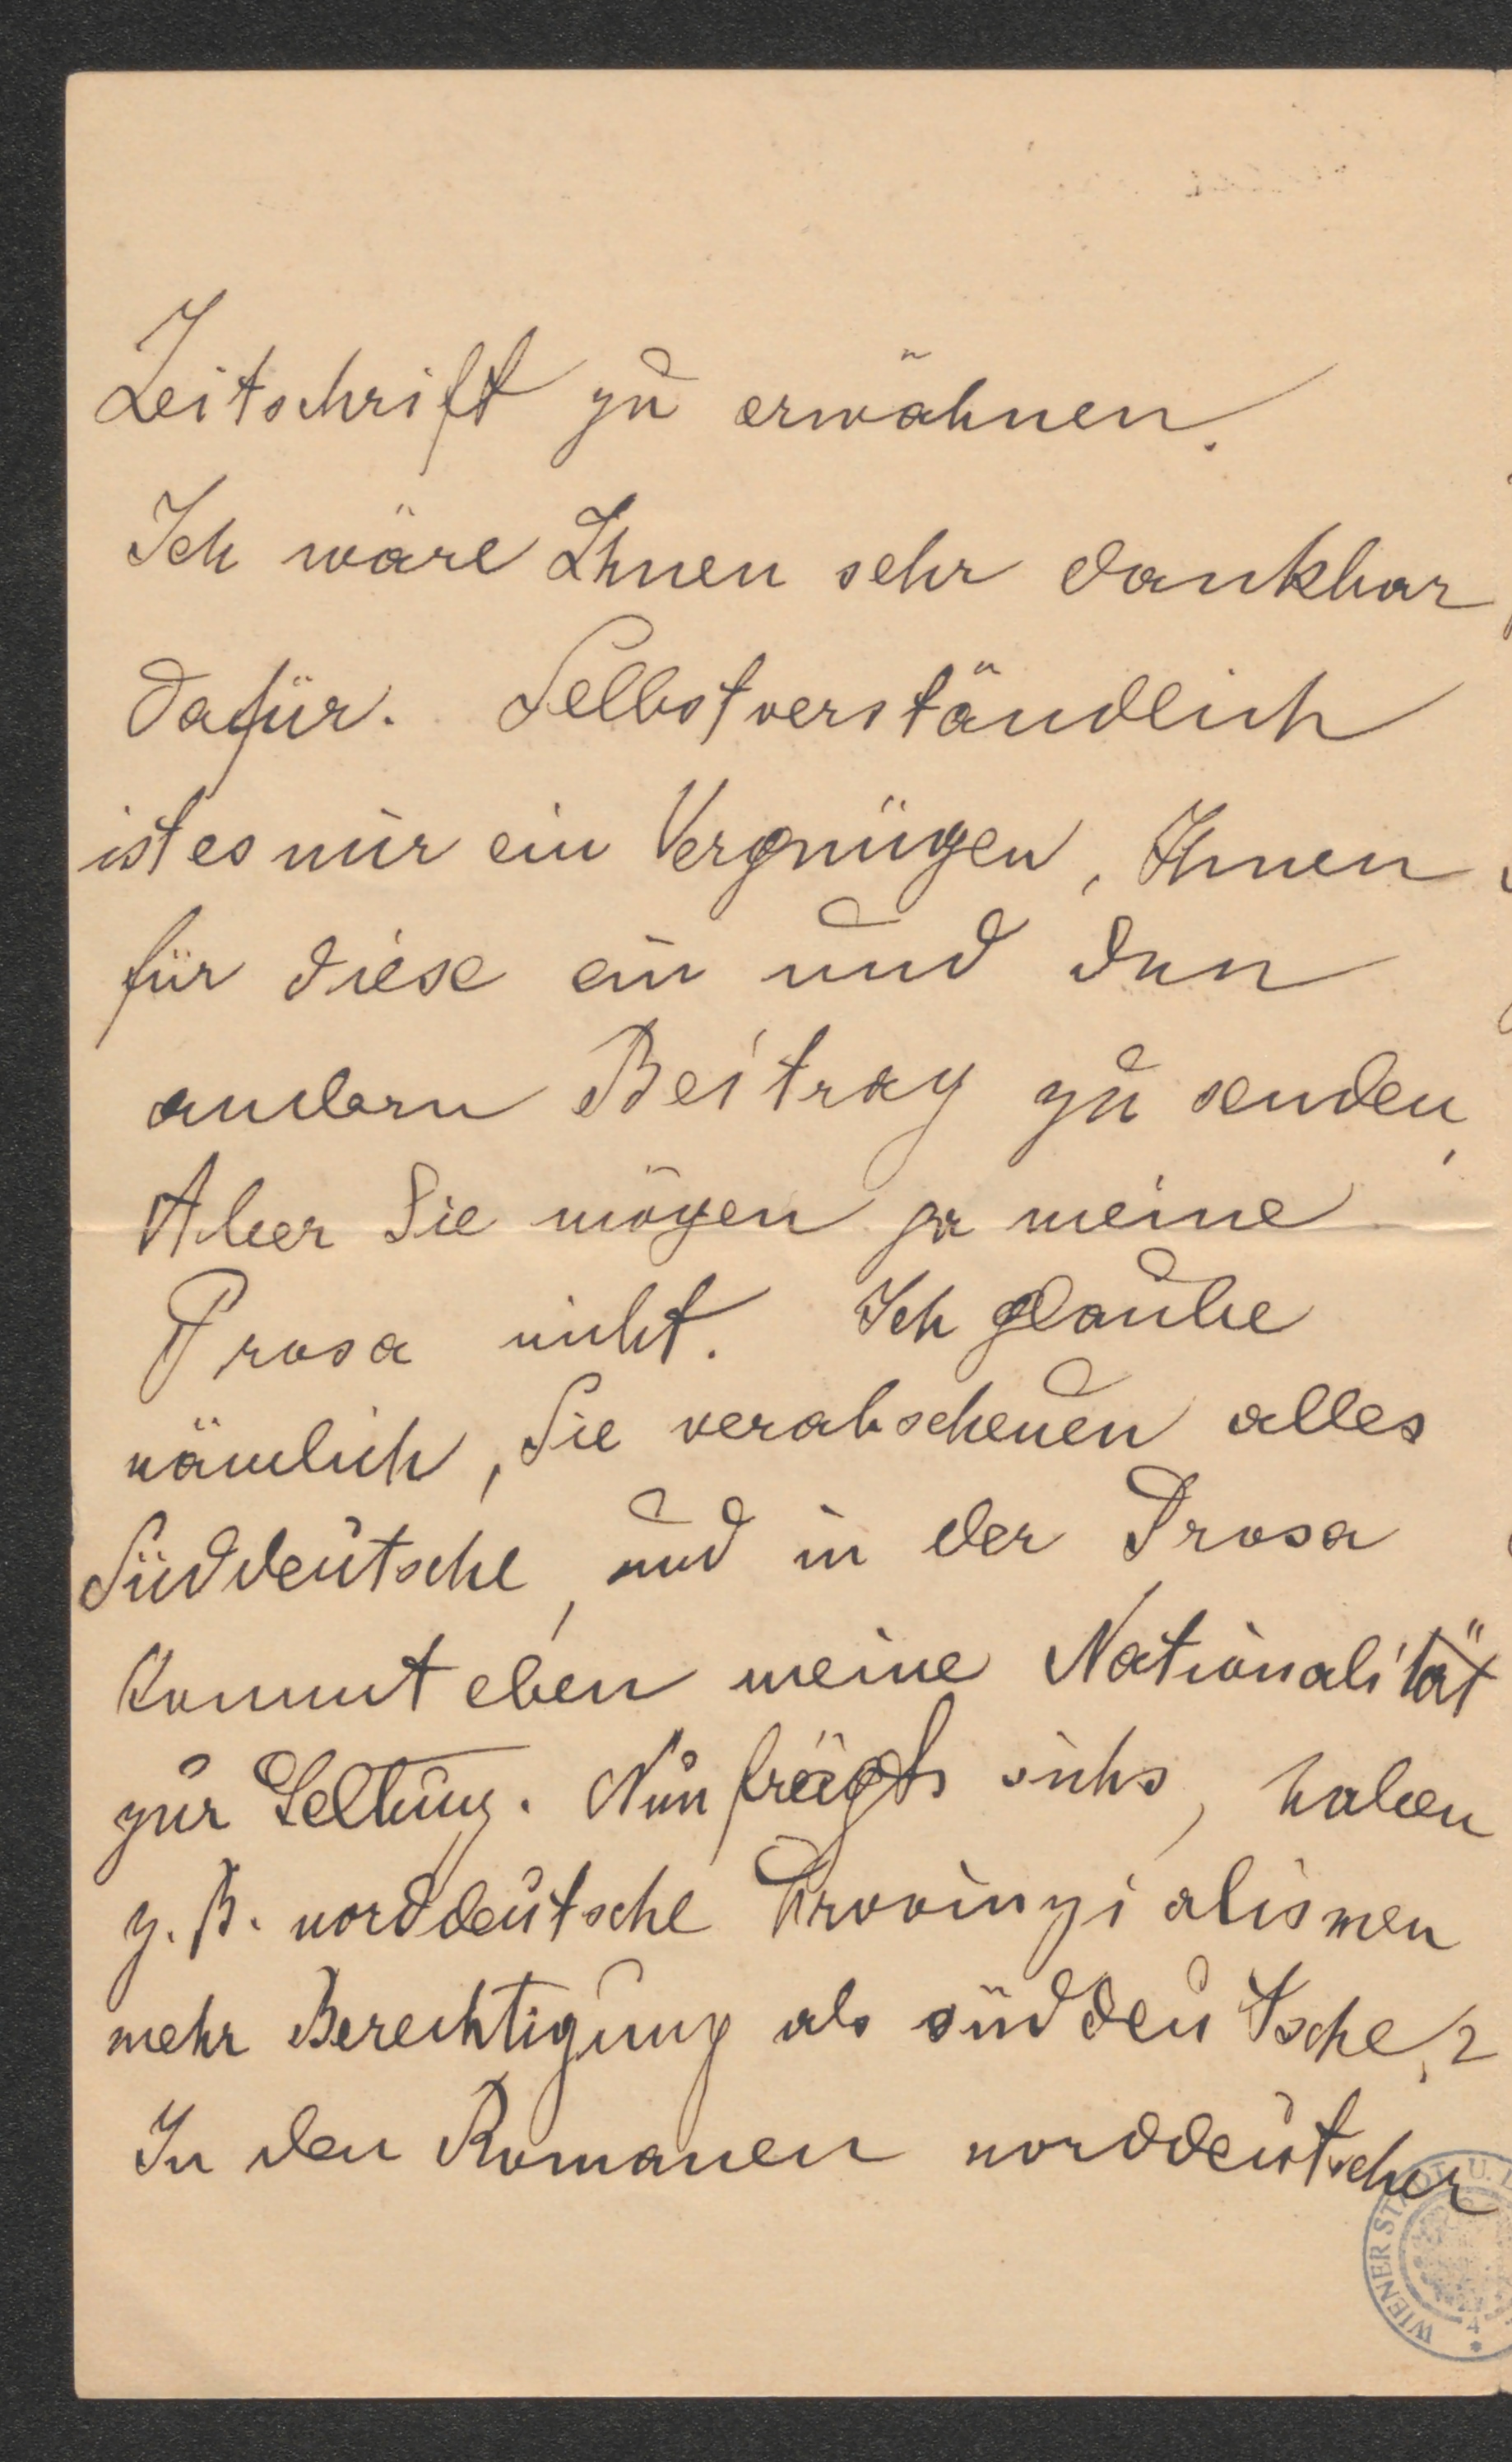 Zeitschrift zu erwähnen.
Ich wäre Ihnen sehr dankbar
dafür. Selbstverständlich
ist es mir ein Vergnügen, Ihnen
für diese ein und den
andern Beitrag zu senden,
Aber Sie mögen ja meine
Prosa nicht. Ich glaube
nämlich, Sie verabscheuen alles
Süddeutsche, und in der Prosa
kommt eben meine Nationalität
zur Geltung. Nun frägts sichs, haben
z. B. norddeutsche Provinzialismen
mehr Berechtigung als süddeutsche?
In den Romanen norddeutscher
WIENER STADT U.
4